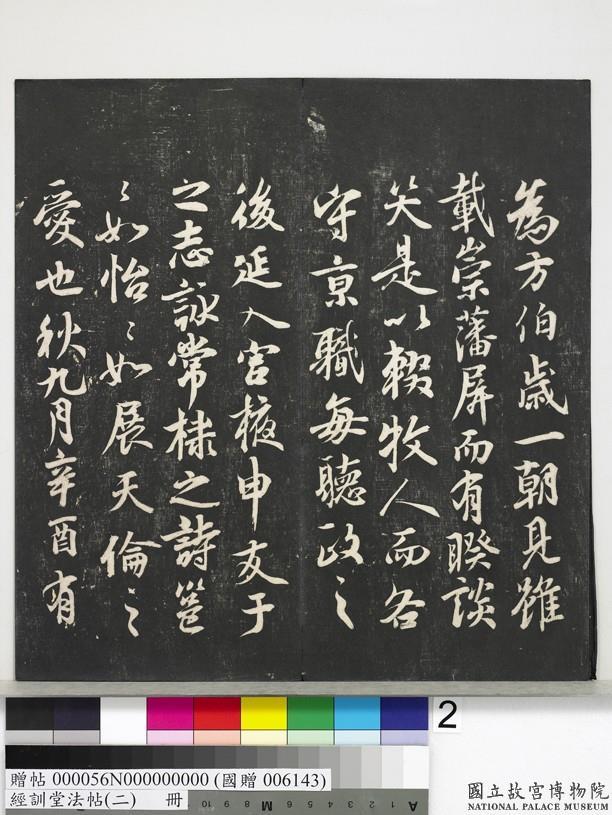 為方伯歲一朝見雖
載崇藩屏而有睽談
笑是以輟牧人而各
守京職每聽政之
後延入宮掖申友于
之志詠常棣之詩邕
〻如怡〻如展天倫之
愛也秋九月辛酉有
2
贈帖 000056N000000000 (國贈 006143)
經訓堂法帖(二) 冊
國立故宮博物院
NATIONAL PALACE MUSEUM